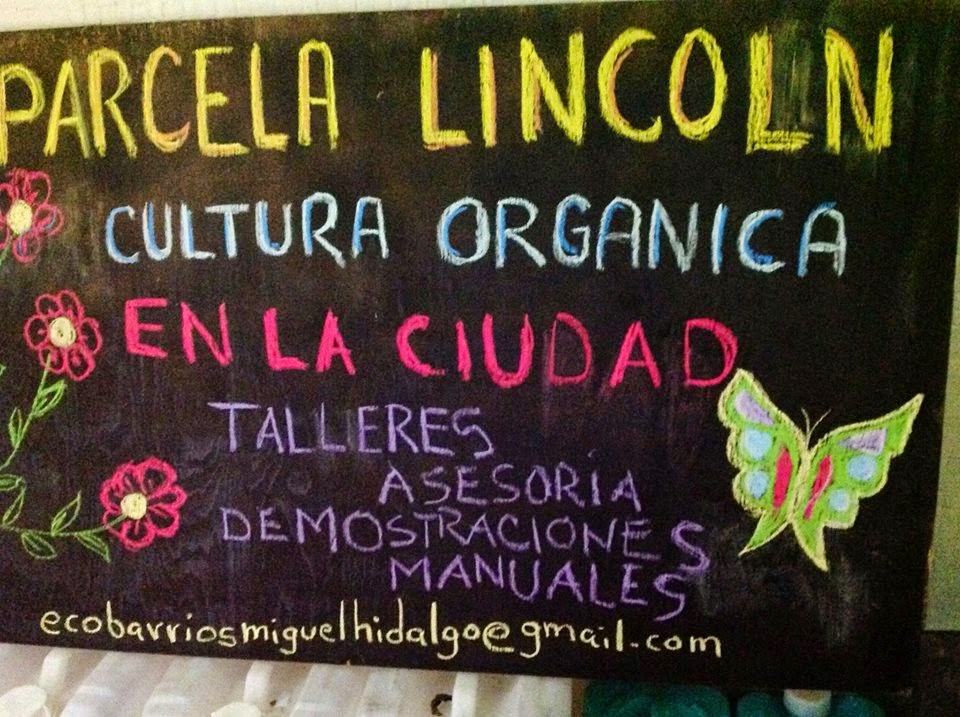 PARCELA LINCOLN
CULTURA ORGANICA
EN LA CIUDAD
TALLERES
ASESORÍA
DEMOSTRACIONES
MANUALES
ecobarriosmiguelhidalgo@gmail.com